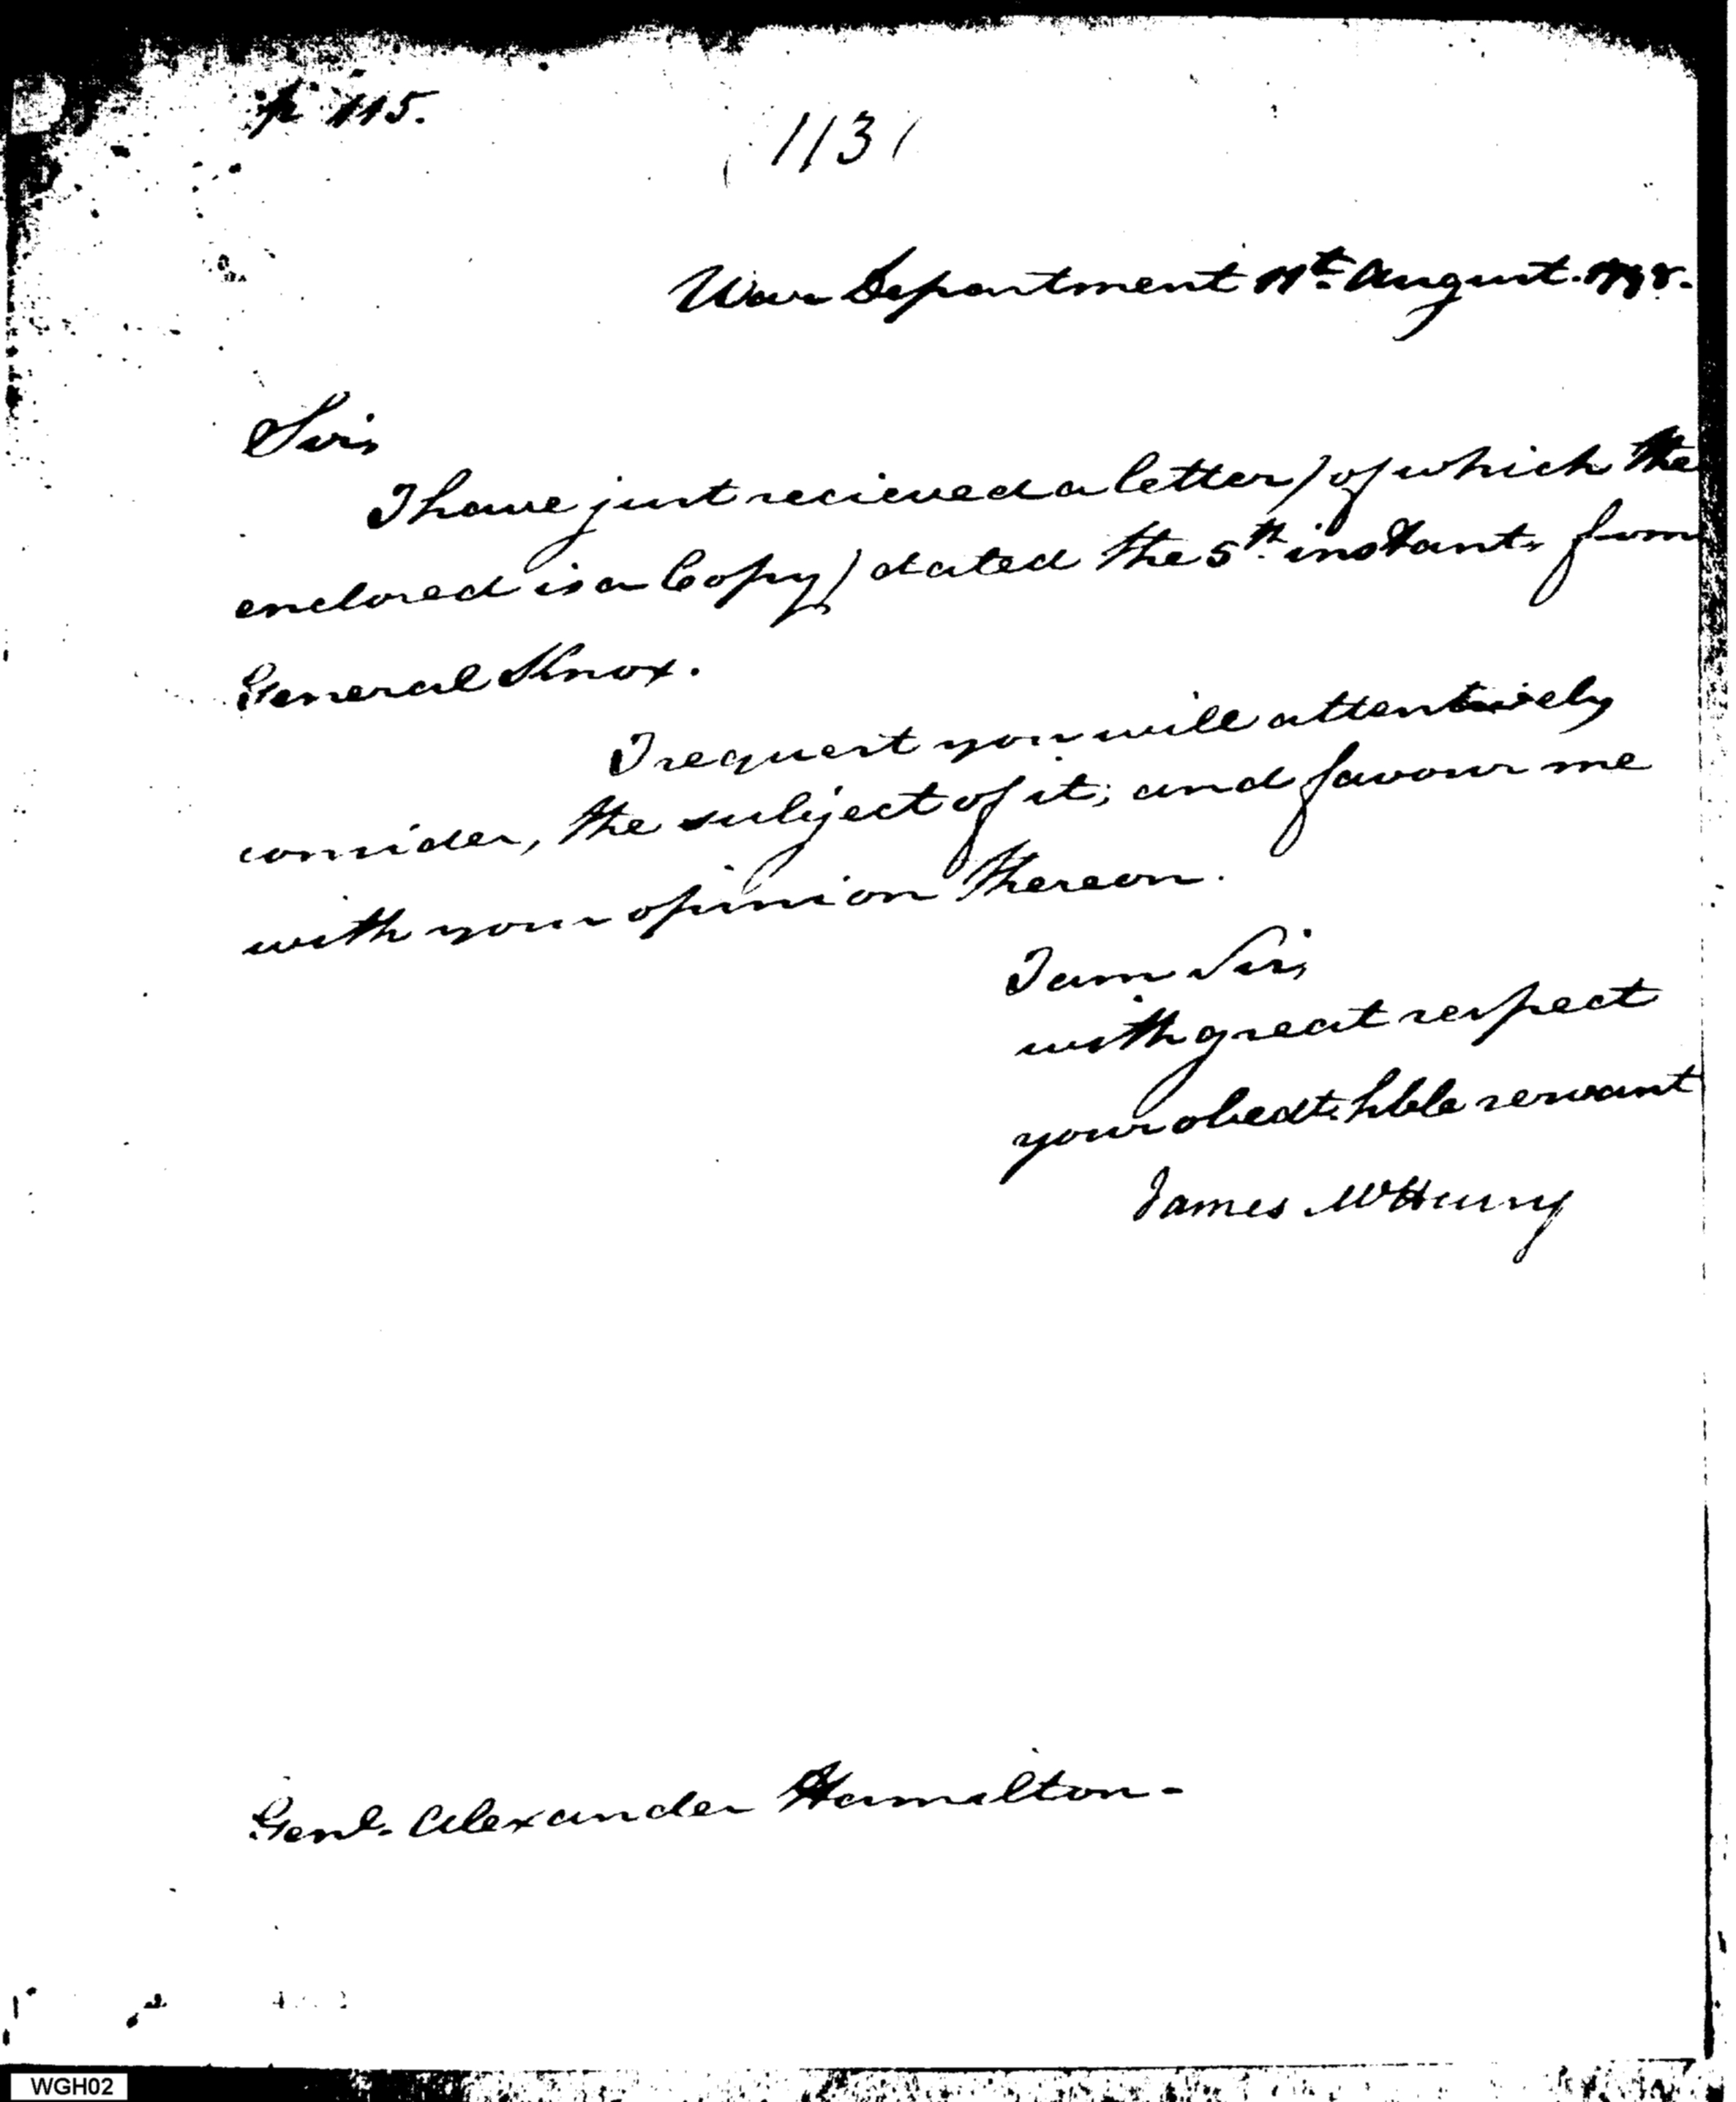 p 115.
113
War Department 11th. August. 1798.
Sir,
I have just recieved a letter, (of which the
enclosed is a Copy,) dated the 5th. instant, from
General Knox.
I request you will attentively
consider, the subject of it; and favour me
with your opinion thereon.
I am Sir,
with great respect
your obedt. hble servant
James McHenry
Genl. Alexander Hamilton -
WGH02